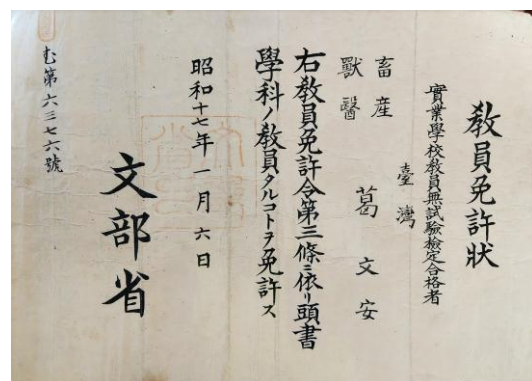 教員免許状
實業學校教員無試驗檢定合格者
臺灣
葛文安
畜産
獸醫
右教員免許令第三條ニ依リ頭書
學科ノ教員タルコトヲ免許ス
昭和十七年一月六日
文部省
第六三七六號